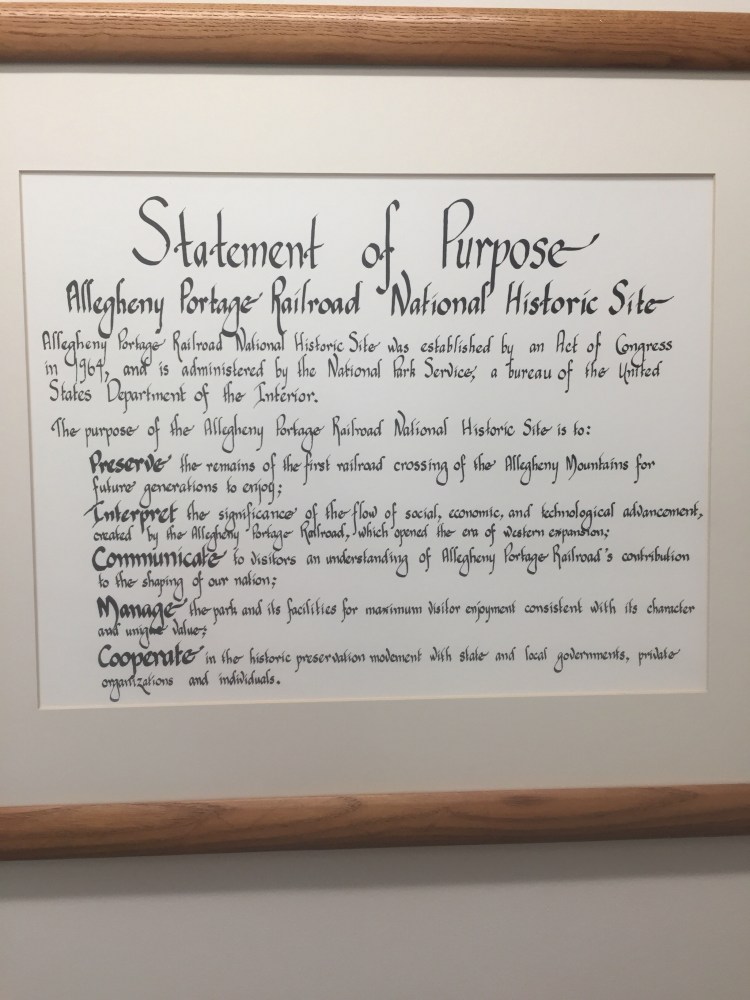 Statement of Purpose
Allegheny Portage Railroad National Historic Site
Allegheny Portage Railroad National Historic Site was established by an Act of Congress
in 1964, and is administered by the National Park Service, a bureau of the United
States Department of the Interior.
The purpose of the Allegheny Portage Railroad National Historic Site is to:
Preserve the remains of the first railroad crossing of the Allegheny Mountains for
future generations to enjoy;
Interpret the significance of the flow of social, economic, and technological advancement,
created by the Allegheny Portage Railroad, which opened the era of western expansion;
Communicate to visitors an understanding of Allegheny Portage Railroad's contribution
to the shaping of our nation;
Manage the park and its facilities for maximum visitor enjoyment consistent with its character
and unique value;
Cooperate in the historic preservation movement with state and local governments, private
organizations and individuals.